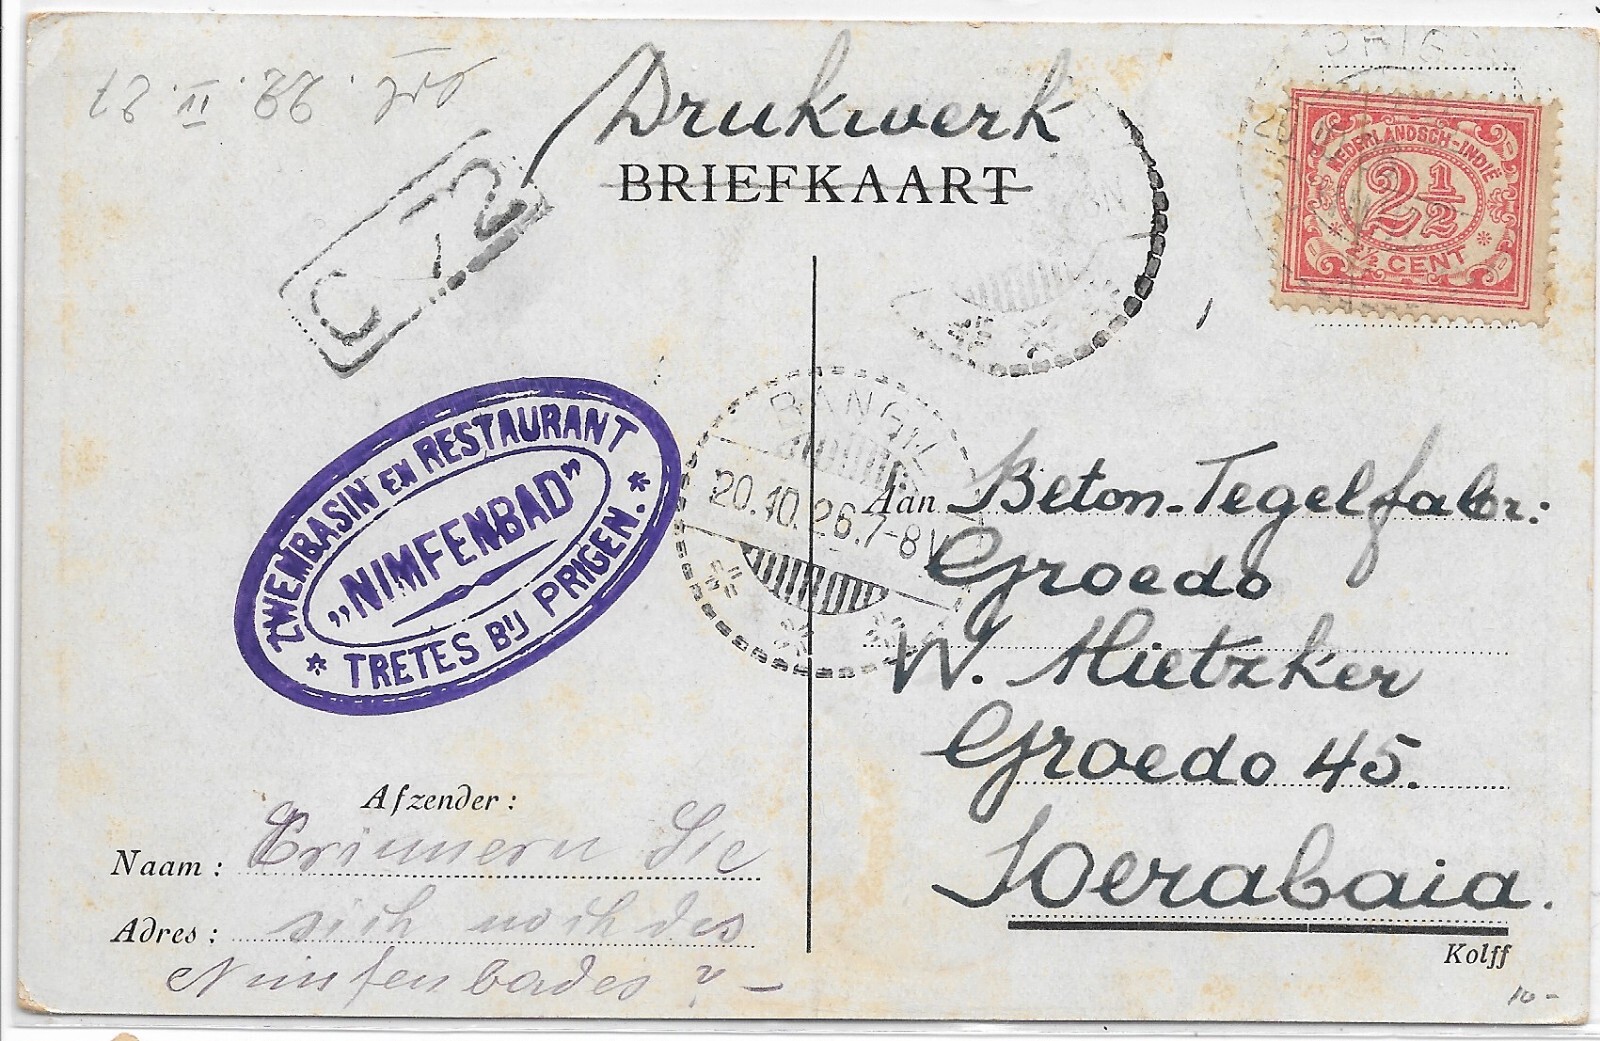 Drukwerk
BRIEFKAART
NEDERLANDSCH-INDIË
2½
2½ CENT
ZWEMBASIN EN RESTAURANT
„NIMFENBAD”
* TRETES BIJ PRIGEN. *
BANGIL
20.10.26.7-8V
Aan Beton-Tegelfabr:
Groedo
W. Mietzker
Groedo 45.
Soerabaia.
Kolff
Afzender:
Naam: Erinnern Sie
Adres: sich noch des
Nimfenbades? –
10-